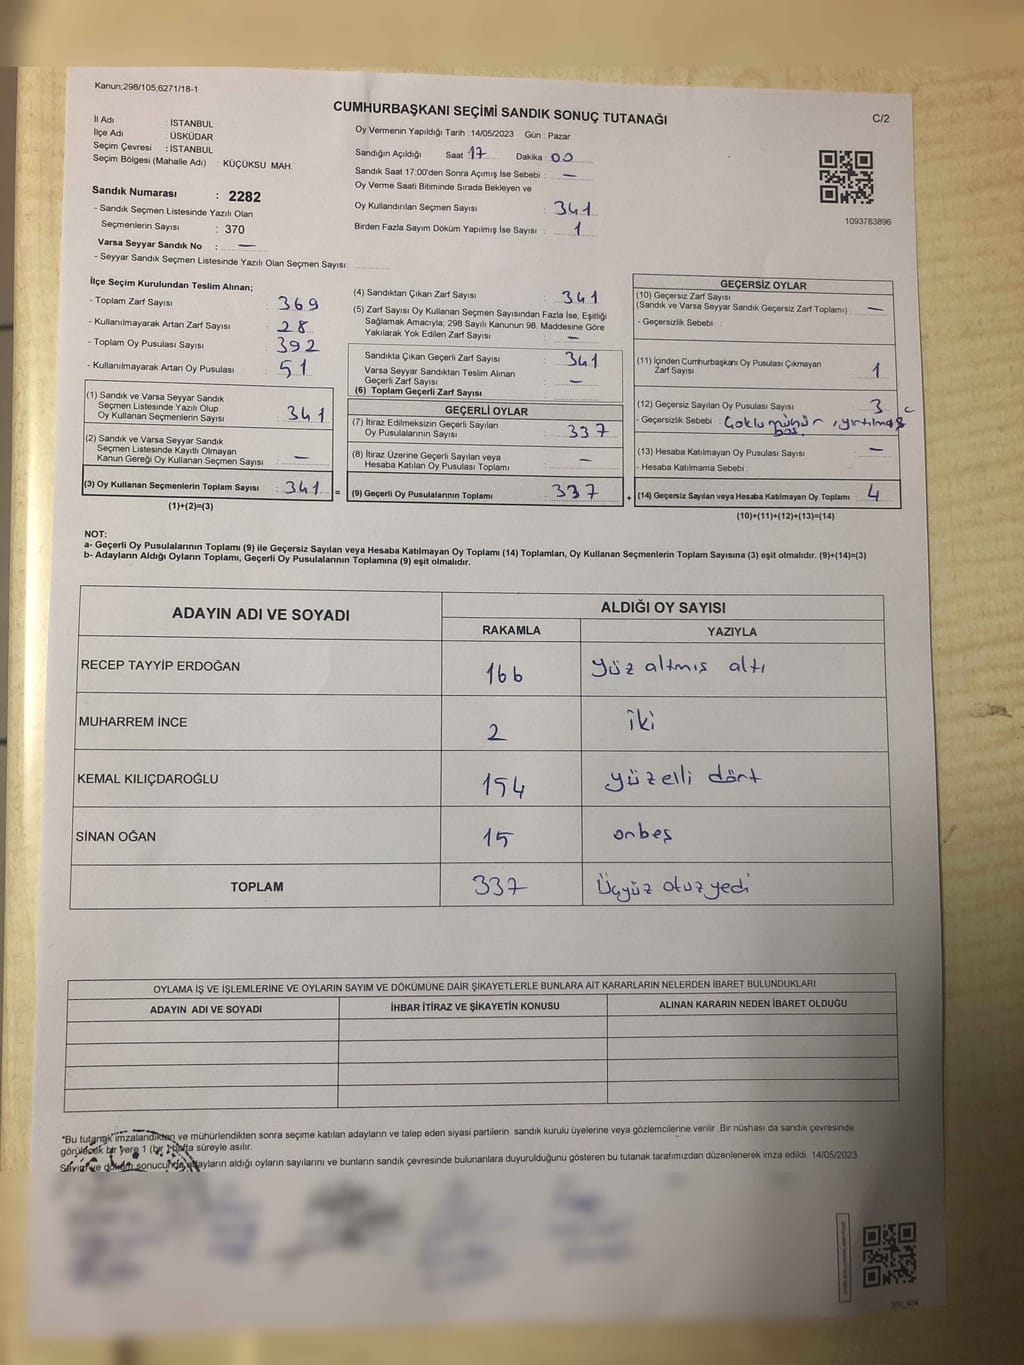 Kanun;298/105,6271/18-1
CUMHURBAŞKANI SEÇİMİ SANDIK SONUÇ TUTANAĞI
C/2
İl Adı : İSTANBUL
İlçe Adı : ÜSKÜDAR
Seçim Çevresi : İSTANBUL
Seçim Bölgesi (Mahalle Adı) : KÜÇÜKSU MAH.
Sandık Numarası : 2282
- Sandık Seçmen Listesinde Yazılı Olan
Seçmenlerin Sayısı : 370
Varsa Seyyar Sandık No : —
- Seyyar Sandık Seçmen Listesinde Yazılı Olan Seçmen Sayısı:
Oy Vermenin Yapıldığı Tarih : 14/05/2023 Gün : Pazar
Sandığın Açıldığı Saat 17 Dakika : 00
Sandık Saat 17:00'den Sonra Açımış İse Sebebi : —
Oy Verme Saati Bitiminde Sırada Bekleyen ve
Oy Kullandırılan Seçmen Sayısı : 341
Birden Fazla Sayım Döküm Yapılmış İse Sayısı : 1
1093763896
İlçe Seçim Kurulundan Teslim Alınan;
- Toplam Zarf Sayısı : 369
- Kullanılmayarak Artan Zarf Sayısı : 28
- Toplam Oy Pusulası Sayısı : 392
- Kullanılmayarak Artan Oy Pusulası : 51
(1) Sandık ve Varsa Seyyar Sandık
Seçmen Listesinde Yazılı Olup
Oy Kullanan Seçmenlerin Sayısı : 341
(2) Sandık ve Varsa Seyyar Sandık
Seçmen Listesinde Kayıtlı Olmayan
Kanun Gereği Oy Kullanan Seçmen Sayısı : —
(3) Oy Kullanan Seçmenlerin Toplam Sayısı : 341 =
(1)+(2)=(3)
(4) Sandıktan Çıkan Zarf Sayısı : 341
(5) Zarf Sayısı Oy Kullanan Seçmen Sayısından Fazla İse, Eşitliği
Sağlamak Amacıyla; 298 Sayılı Kanunun 98. Maddesine Göre
Yakılarak Yok Edilen Zarf Sayısı : —
Sandıkta Çıkan Geçerli Zarf Sayısı : 341
Varsa Seyyar Sandıktan Teslim Alınan
Geçerli Zarf Sayısı : —
(6) Toplam Geçerli Zarf Sayısı :
GEÇERLİ OYLAR
(7) İtiraz Edilmeksizin Geçerli Sayılan
Oy Pusulalarının Sayısı : 337
(8) İtiraz Üzerine Geçerli Sayılan veya
Hesaba Katılan Oy Pusulası Toplamı : —
(9) Geçerli Oy Pusulalarının Toplamı : 337 +
GEÇERSİZ OYLAR
(10) Geçersiz Zarf Sayısı
(Sandık ve Varsa Seyyar Sandık Geçersiz Zarf Toplamı) : —
- Geçersizlik Sebebi :
(11) İçinden Cumhurbaşkanı Oy Pusulası Çıkmayan
Zarf Sayısı : 1
(12) Geçersiz Sayılan Oy Pusulası Sayısı : 3
- Geçersizlik Sebebi : Çoklu mühür, yırtılmış
boş.
(13) Hesaba Katılmayan Oy Pusulası Sayısı : —
- Hesaba Katılmama Sebebi :
(14) Geçersiz Sayılan veya Hesaba Katılmayan Oy Toplamı : 4
(10)+(11)+(12)+(13)=(14)
NOT:
a- Geçerli Oy Pusulalarının Toplamı (9) ile Geçersiz Sayılan veya Hesaba Katılmayan Oy Toplamı (14) Toplamları, Oy Kullanan Seçmenlerin Toplam Sayısına (3) eşit olmalıdır. (9)+(14)=(3)
b- Adayların Aldığı Oyların Toplamı, Geçerli Oy Pusulalarının Toplamına (9) eşit olmalıdır.
ADAYIN ADI VE SOYADI
ALDIĞI OY SAYISI
RAKAMLA YAZIYLA
RECEP TAYYİP ERDOĞAN 166 yüz altmış altı
MUHARREM İNCE 2 iki
KEMAL KILIÇDAROĞLU 154 yüzelli dört
SİNAN OĞAN 15 onbeş
TOPLAM 337 Üçyüz otuz yedi
OYLAMA İŞ VE İŞLEMLERİNE VE OYLARIN SAYIM VE DÖKÜMÜNE DAİR ŞİKAYETLERLE BUNLARA AİT KARARLARIN NELERDEN İBARET BULUNDUKLARI
ADAYIN ADI VE SOYADI İHBAR İTİRAZ VE ŞİKAYETİN KONUSU ALINAN KARARIN NEDEN İBARET OLDUĞU
*Bu tutanak imzalandıktan ve mühürlendikten sonra seçime katılan adayların ve talep eden siyasi partilerin sandık kurulu üyelerine veya gözlemcilerine verilir. Bir nüshası da sandık çevresinde
görülecek bir yere 1 (bir ) hafta süreyle asılır.
Sayım ve döküm sonucunda adayların aldığı oyların sayılarını ve bunların sandık çevresinde bulunanlara duyurulduğunu gösteren bu tutanak tarafımızdan düzenlenerek imza edildi. 14/05/2023